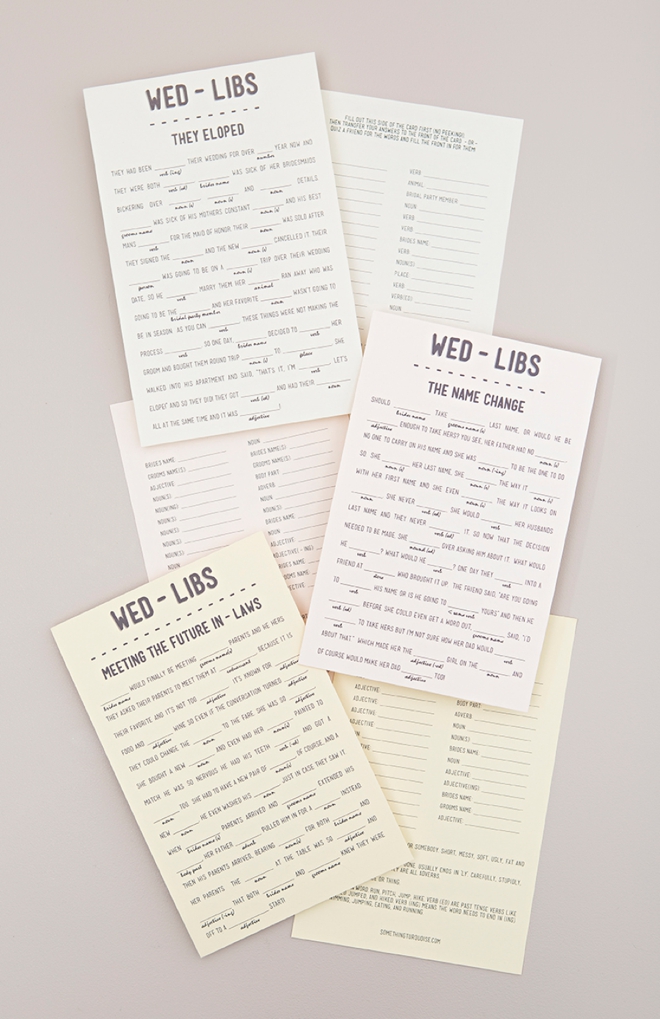 WED - LIBS
THEY ELOPED
THEY HAD BEEN ______ THEIR WEDDING FOR OVER ______ YEAR NOW AND
verb (ing) number
THEY WERE BOTH ______ ______ WAS SICK OF HER BRIDESMAIDS
verb (ed) brides name
BICKERING OVER ______ ______ AND ______ DETAILS
noun
______ WAS SICK OF HIS MOTHERS CONSTANT ______ AND HIS BEST
grooms name noun (s)
MANS ______ FOR THE MAID OF HONOR. THEIR ______ WAS SOLD AFTER
verb noun
THEY SIGNED THE ______ AND THE NEW ______ CANCELLED IT. THEIR
noun noun (s)
______ WAS GOING TO BE ON A ______ TRIP OVER THEIR WEDDING
person noun (s)
DATE, SO HE ______ MARRY THEM. HER ______ RAN AWAY WHO WAS
verb animal
GOING TO BE THE ______ AND HER FAVORITE ______ WASN'T GOING TO
bridal party member noun
BE IN SEASON. AS YOU CAN ______ THESE THINGS WERE NOT MAKING THE
verb
PROCESS ______ SO ONE DAY ______ DECIDED TO ______ HER
verb brides name verb
GROOM AND BOUGHT THEM ROUND TRIP ______ TO ______ SHE
noun (s) place
WALKED INTO HIS APARTMENT AND SAID, "THAT'S IT, I'M ______ LET'S
verb
ELOPE!" AND SO THEY DID! THEY GOT ______ AND HAD THEIR ______
verb (ed) noun
ALL AT THE SAME TIME AND IT WAS ______!
adjective
FILL OUT THIS SIDE OF THE CARD FIRST (NO PEEKING!),
THEN TRANSFER YOUR ANSWERS TO THE FRONT OF THE CARD - OR -
QUIZ A FRIEND FOR THE WORDS AND FILL THE FRONT IN FOR THEM
VERB
ANIMAL
BRIDAL PARTY MEMBER
NOUN
VERB
VERB
BRIDES NAME
VERB
NOUN(S)
PLACE
VERB
VERB(ES)
NOUN
WED - LIBS
THE NAME CHANGE
SHOULD ______ TAKE ______ LAST NAME, OR WOULD HE BE
brides name grooms name (s)
______ ENOUGH TO TAKE HERS? YOU SEE, HER FATHER HAD NO ______
adjective noun (s)
NO ONE TO CARRY ON HIS NAME AND SHE WAS ______ TO BE THE ONE TO DO
noun (-ing)
SO. SHE ______ HER LAST NAME, SHE ______ THE WAY IT ______
noun (s)
WITH HER FIRST NAME AND SHE EVEN ______ THE WAY IT LOOKS ON
noun (s)
______ SHE NEVER ______ SHE WOULD ______ HER HUSBANDS
noun verb (ed) verb
LAST NAME AND THEY NEVER ______ IT. SO NOW THAT THE DECISION
verb (ed)
NEEDED TO BE MADE, SHE ______ OVER ASKING HIM ABOUT IT. WHAT WOULD
HE ______? WHAT WOULD HE ______? ONE DAY THEY ______ INTO A
verb verb verb
FRIEND AT ______ WHO BROUGHT IT UP. THE FRIEND SAID, "ARE YOU GOING
store
TO ______ HIS NAME OR IS HE GOING TO ______ YOURS" AND THEN HE
verb
______ BEFORE SHE COULD EVEN GET A WORD OUT, ______ SAID, "I'D
verb (ed) grooms name
______ TO TAKE HERS BUT I'M NOT SURE HOW HER DAD WOULD ______
verb verb
ABOUT THAT." WHICH MADE HER THE ______ GIRL ON THE ______ AND
adjective (est) noun
OF COURSE WOULD MAKE HER DAD ______ TOO!
adjective
BRIDES NAME
GROOMS NAME(S)
ADJECTIVE
NOUN(S)
NOUN(ING)
NOUN(S)
NOUN(S)
NOUN(S)
NOUN
NOUN
NOUN(S)
BRIDES NAME(S)
GROOMS NAME(S)
BODY PART
ADVERB
NOUN
NOUN(S)
BRIDES NAME
NOUN
ADJECTIVE
ADJECTIVE( - ING)
BRIDES NAME
GROOMS NAME
ADJECTIVE
WED - LIBS
MEETING THE FUTURE IN - LAWS
______ WOULD FINALLY BE MEETING ______ PARENTS AND HE HERS
brides name grooms name(s)
THEY ASKED THEIR PARENTS TO MEET THEM AT ______ BECAUSE IT IS
restaurant
THEIR FAVORITE AND IT'S NOT TOO ______ IT'S KNOWN FOR ______
adjective adjective
FOOD AND ______ WINE SO EVEN IF THE CONVERSATION TURNED ______
adjective adjective
THEY COULD CHANGE THE ______ TO THE FARE. SHE WAS SO ______
noun adjective
SHE BOUGHT A NEW ______ AND EVEN HAD HER ______ PAINTED TO
noun noun(s)
MATCH. HE WAS SO NERVOUS HE HAD HIS TEETH ______ AND GOT A
verb (ed)
______ TOO. SHE HAD TO HAVE A NEW PAIR OF ______ OF COURSE, AND A
noun noun(s)
NEW ______ HE EVEN WASHED HIS ______ JUST IN CASE THEY SAW IT.
noun noun
WHEN ______ PARENTS ARRIVED AND ______ EXTENDED HIS
brides name(s) grooms name
______ HER FATHER ______ PULLED HIM IN FOR A ______ INSTEAD
body part adverb noun
THEN HIS PARENTS ARRIVED, BEARING ______ FOR BOTH ______ AND
noun(s) brides name
HER PARENTS. THE ______ AT THE TABLE WAS SO ______ AND
noun adjective
______ THAT BOTH ______ AND ______ KNEW THEY WERE
adjective (-ing) brides name grooms name
OFF TO A ______ START!
adjective
ADJECTIVE
ADJECTIVE
ADJECTIVE
ADJECTIVE
NOUN
ADJECTIVE
NOUN
BODY PART
ADVERB
NOUN
NOUN(S)
BRIDES NAME
NOUN
ADJECTIVE
ADJECTIVE(ING)
BRIDES NAME
GROOMS NAME
ADJECTIVE
OR SOMEBODY. SHORT, MESSY, SOFT, UGLY, FAT AND
DONE. USUALLY ENDS IN 'LY'. CAREFULLY, STUPIDLY,
ARE ALL ADVERBS
OR THING
WORD. RUN, PITCH, JUMP, HIKE. VERB (ED) ARE PAST TENSE VERBS LIKE
JUMPED, AND HIKED. VERB (ING) MEANS THE WORD NEEDS TO END IN (ING)
JUMPING, EATING, AND RUNNING
SOMETHINGTURQUOISE.COM